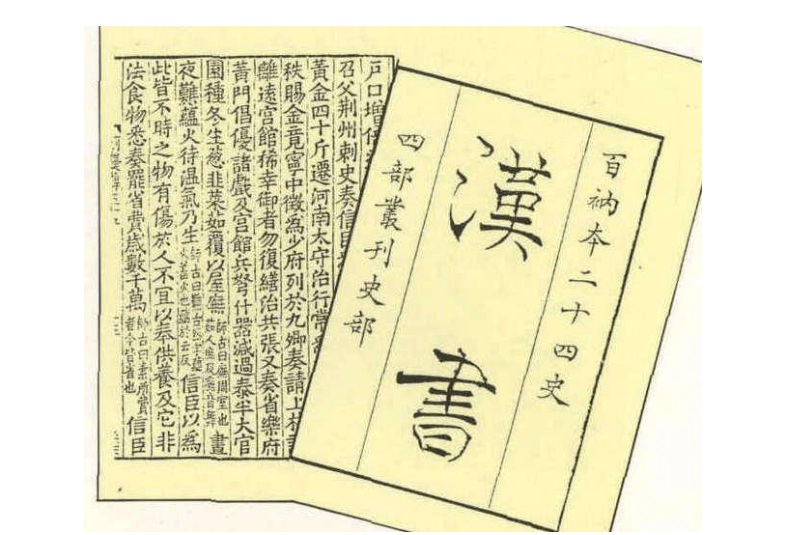 百衲本二十四史
漢書
四部叢刊史部
戶口增倍
召父荊州刺史奏信臣
黃金四十斤遷河南太守治行常
秩賜金竟寧中徵為少府列於九卿奏請上林
離遠宮館稀幸御者勿復繕治共張又奏省樂府
黃門倡優諸戲及宮館兵弩什器減過泰半大官
園種冬生葱韭菜茹覆以屋廡師古曰廡周室也晝
夜難蘊火待溫氣乃生信臣以為
此皆不時之物有傷於人不宜以奉供養及它非
法食物悉奏罷省費歲數千萬師古曰素所費者今皆省也信臣